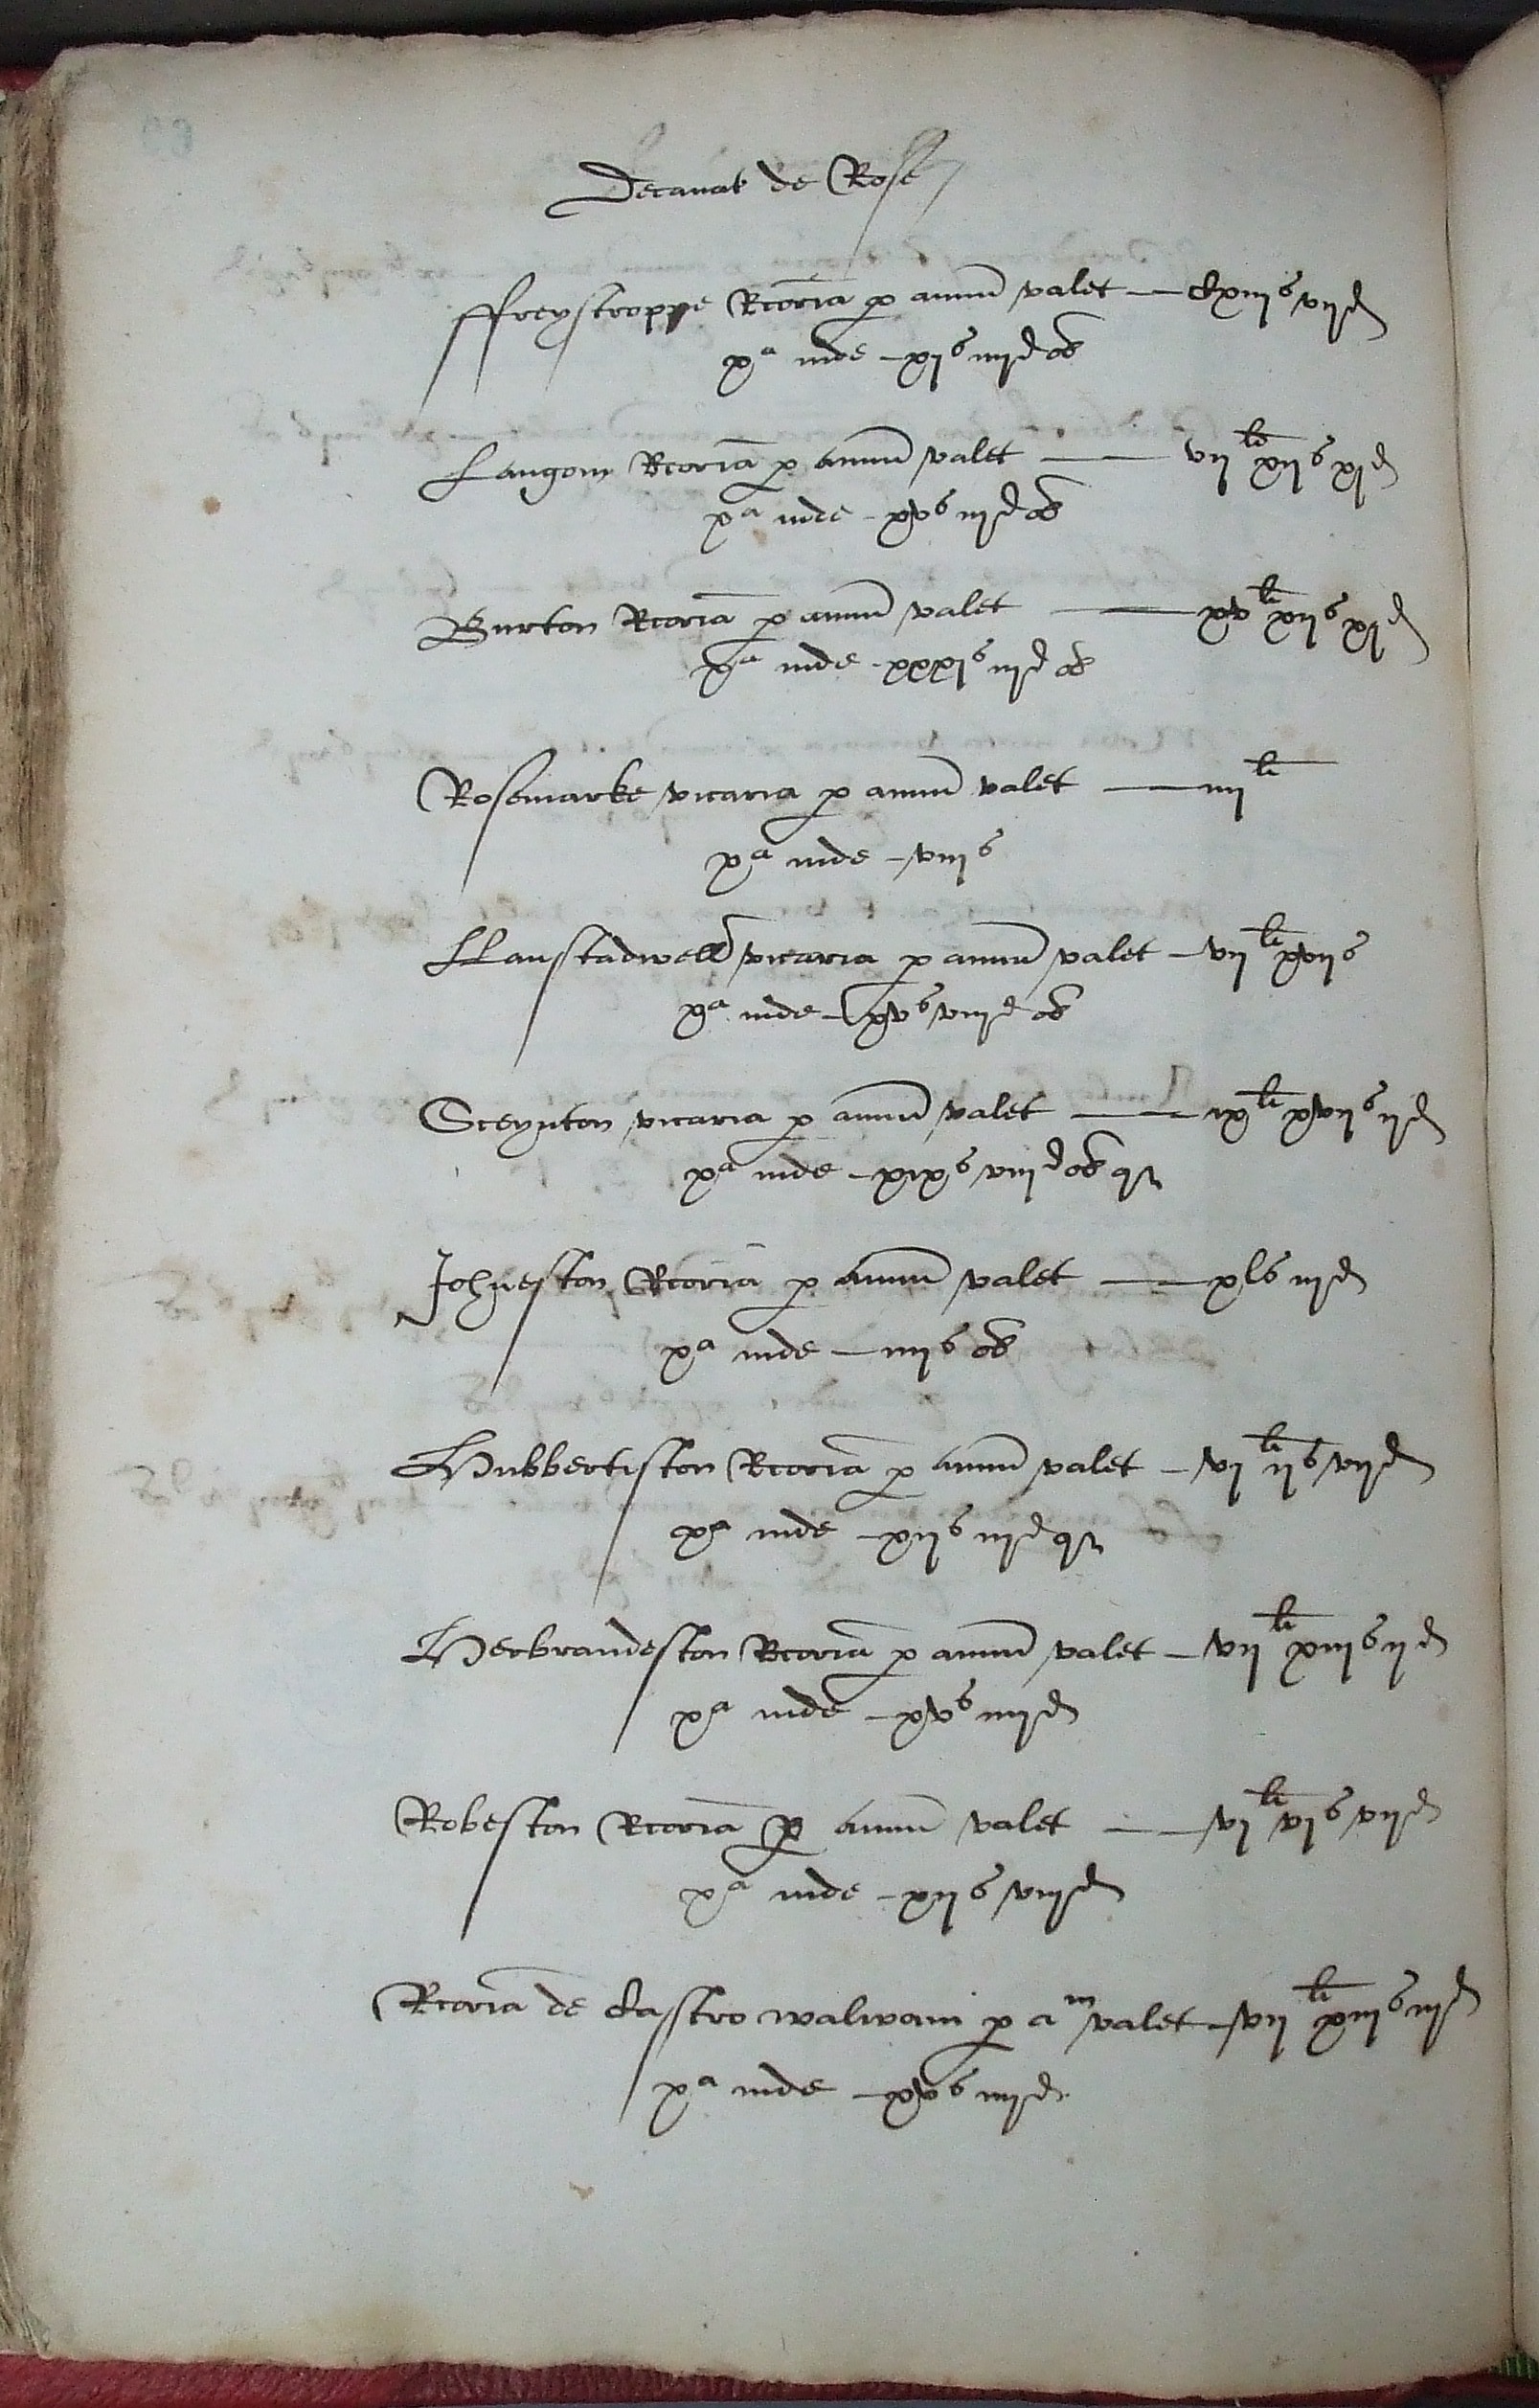 Decanat de Rose
ffreystroppe Rcoria p annu valet — cxiijs vijd
xa inde – xjs iiijd ob
Langom Rcoria p annu valet — vijli xijs xjd
xa inde – xvs iijd ob
Burton Rcoria p annu valet — xvli xijs xjd
xa inde – xxxjs iijd ob
Rosemarke vicaria p annu valet — iiijli
xa inde – viijs
LLanstadwell vicaria p annu valet – vijli xvijs
xa inde – xvs viijd ob
Steynton vicaria p annu valet — ixli xvijs ijd
xa inde – xixs viijd ob qr
Johneston Rcoria p annu valet — xls iijd
xa inde – iiijs ob
Hubbertiston Rcoria p annu valet – vjli ijs vijd
xa inde – xijs iijd qr
Herbrandeston Rcoria p annu valet – vijli xiijs ijd
xa inde – xvs iiijd
Robeston Rcoria p annu valet — vjli vjs vijd
xa inde – xijs viijd
Rcoria de Castro walwani p am valet – vijli xiijs iijd
xa inde – xvs iiijd